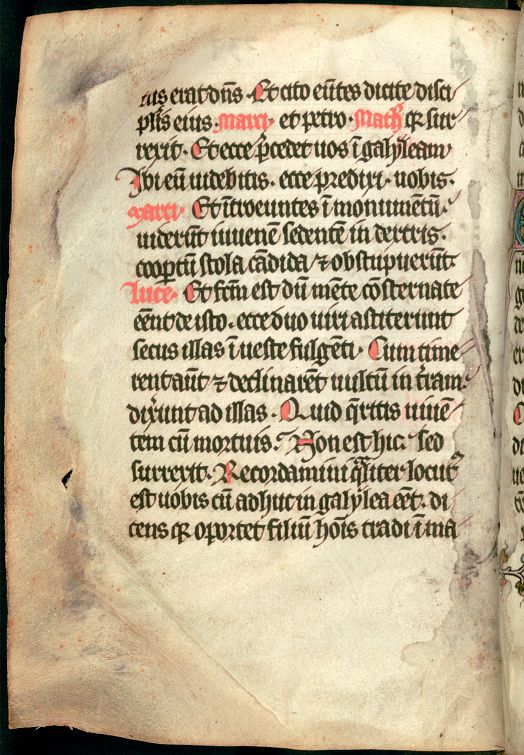 tus erat dn̄s. Et cito eūtes dicite disci
plīs eius. marci. et petro. Math̄ qꝛ sur
rexit. Et ecce p̄cedet uos ī galyleam
Ibi eū uidebitis. ecce predixi. uobis.
Marci. Et ītroeuntes ī monumētū.
uiderūt iuuenē sedentē in dextris.
coopertū stola cādida ⁊ obstupuerūt
Luce. Et fc̄m est dū mēte cōsternate
eēnt de isto. ecce duo uiri astiterunt
secus illas ī ueste fulgēti. Cum time
rent aūt ⁊ declinarēt uultū in t̄ram.
dixūnt ad illas. Quid q̄ritis uiuē
tem cū mortuis. Non est hic. sed
surrexit. Recordamini qͣliter locutꝰ
est uobis cū adhuc in galylea eēt. di
cens qꝛ oportet filiū hōis tradi ī ma